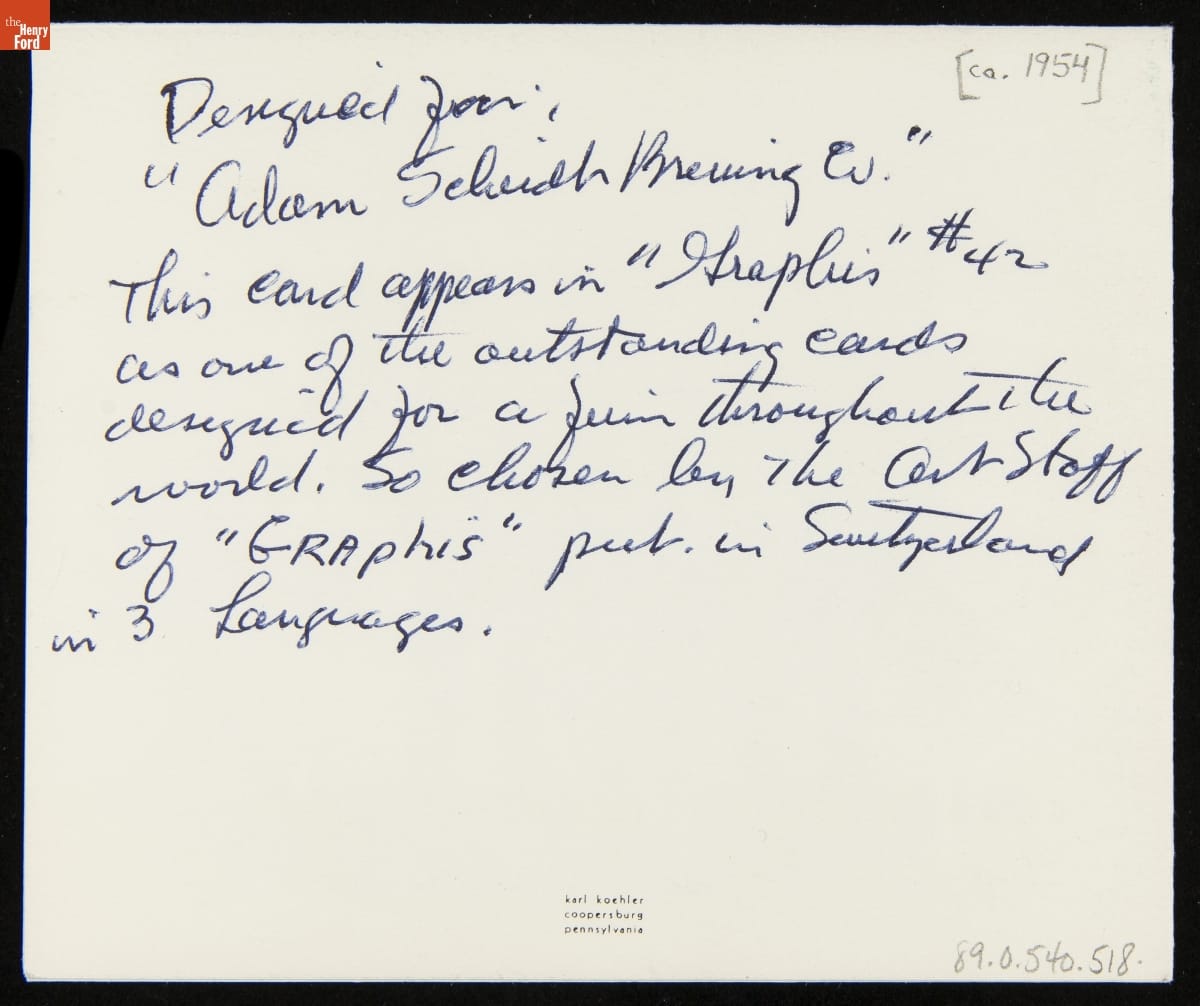 the
Henry
Ford
[ca. 1954]
Designed for:
"Adam Scheidt Brewing Co."
This card appears in "Graphis" #42
as one of the outstanding cards
designed for a firm throughout the
world. So chosen by the Art Staff
of "GRAphis" pub. in Switzerland
in 3 Languages.
karl koehler
coopersburg
pennsylvania
89.0.540.518.